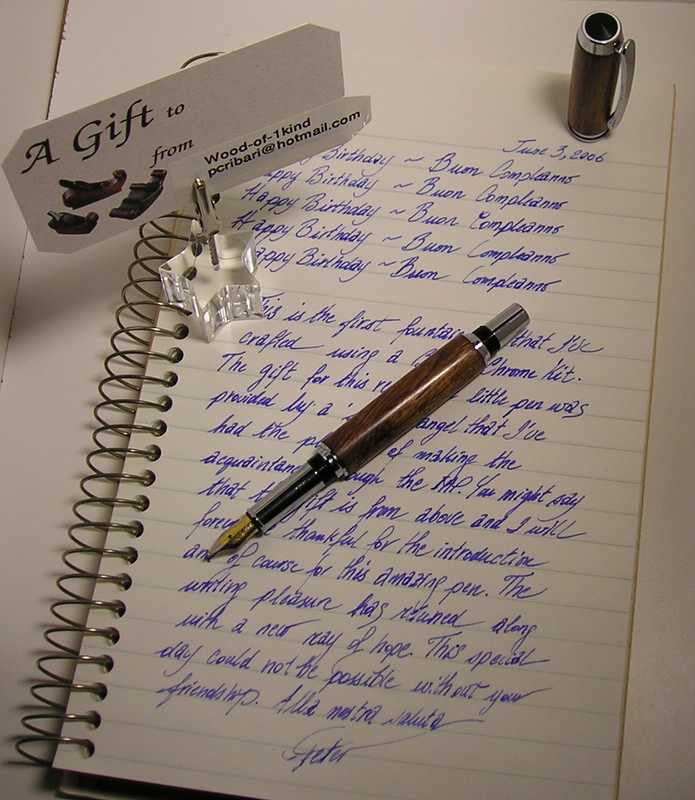 A Gift to
from
Wood-of-1kind
pcribari@hotmail.com
June 3, 2006
Birthday ~ Buon Compleanno
Happy Birthday ~ Buon Compleanno
Happy Birthday ~ Buon Compleanno
Happy Birthday ~ Buon Compleanno
Happy Birthday ~ Buon Compleanno
This is the first fountain that I've
crafted using a Chrome Kit.
The gift for this little pen was
provided by a angel that I've
had the of making the
acquaintan through the IAP. You might say
that the gift is from above and I will
forev thankful for the introduction
and of course for this amazing pen. The
writing pleasure has returned along
with a new ray of hope. This special
day could not be possible without your
friendship. Alla nostra saluta
Peter